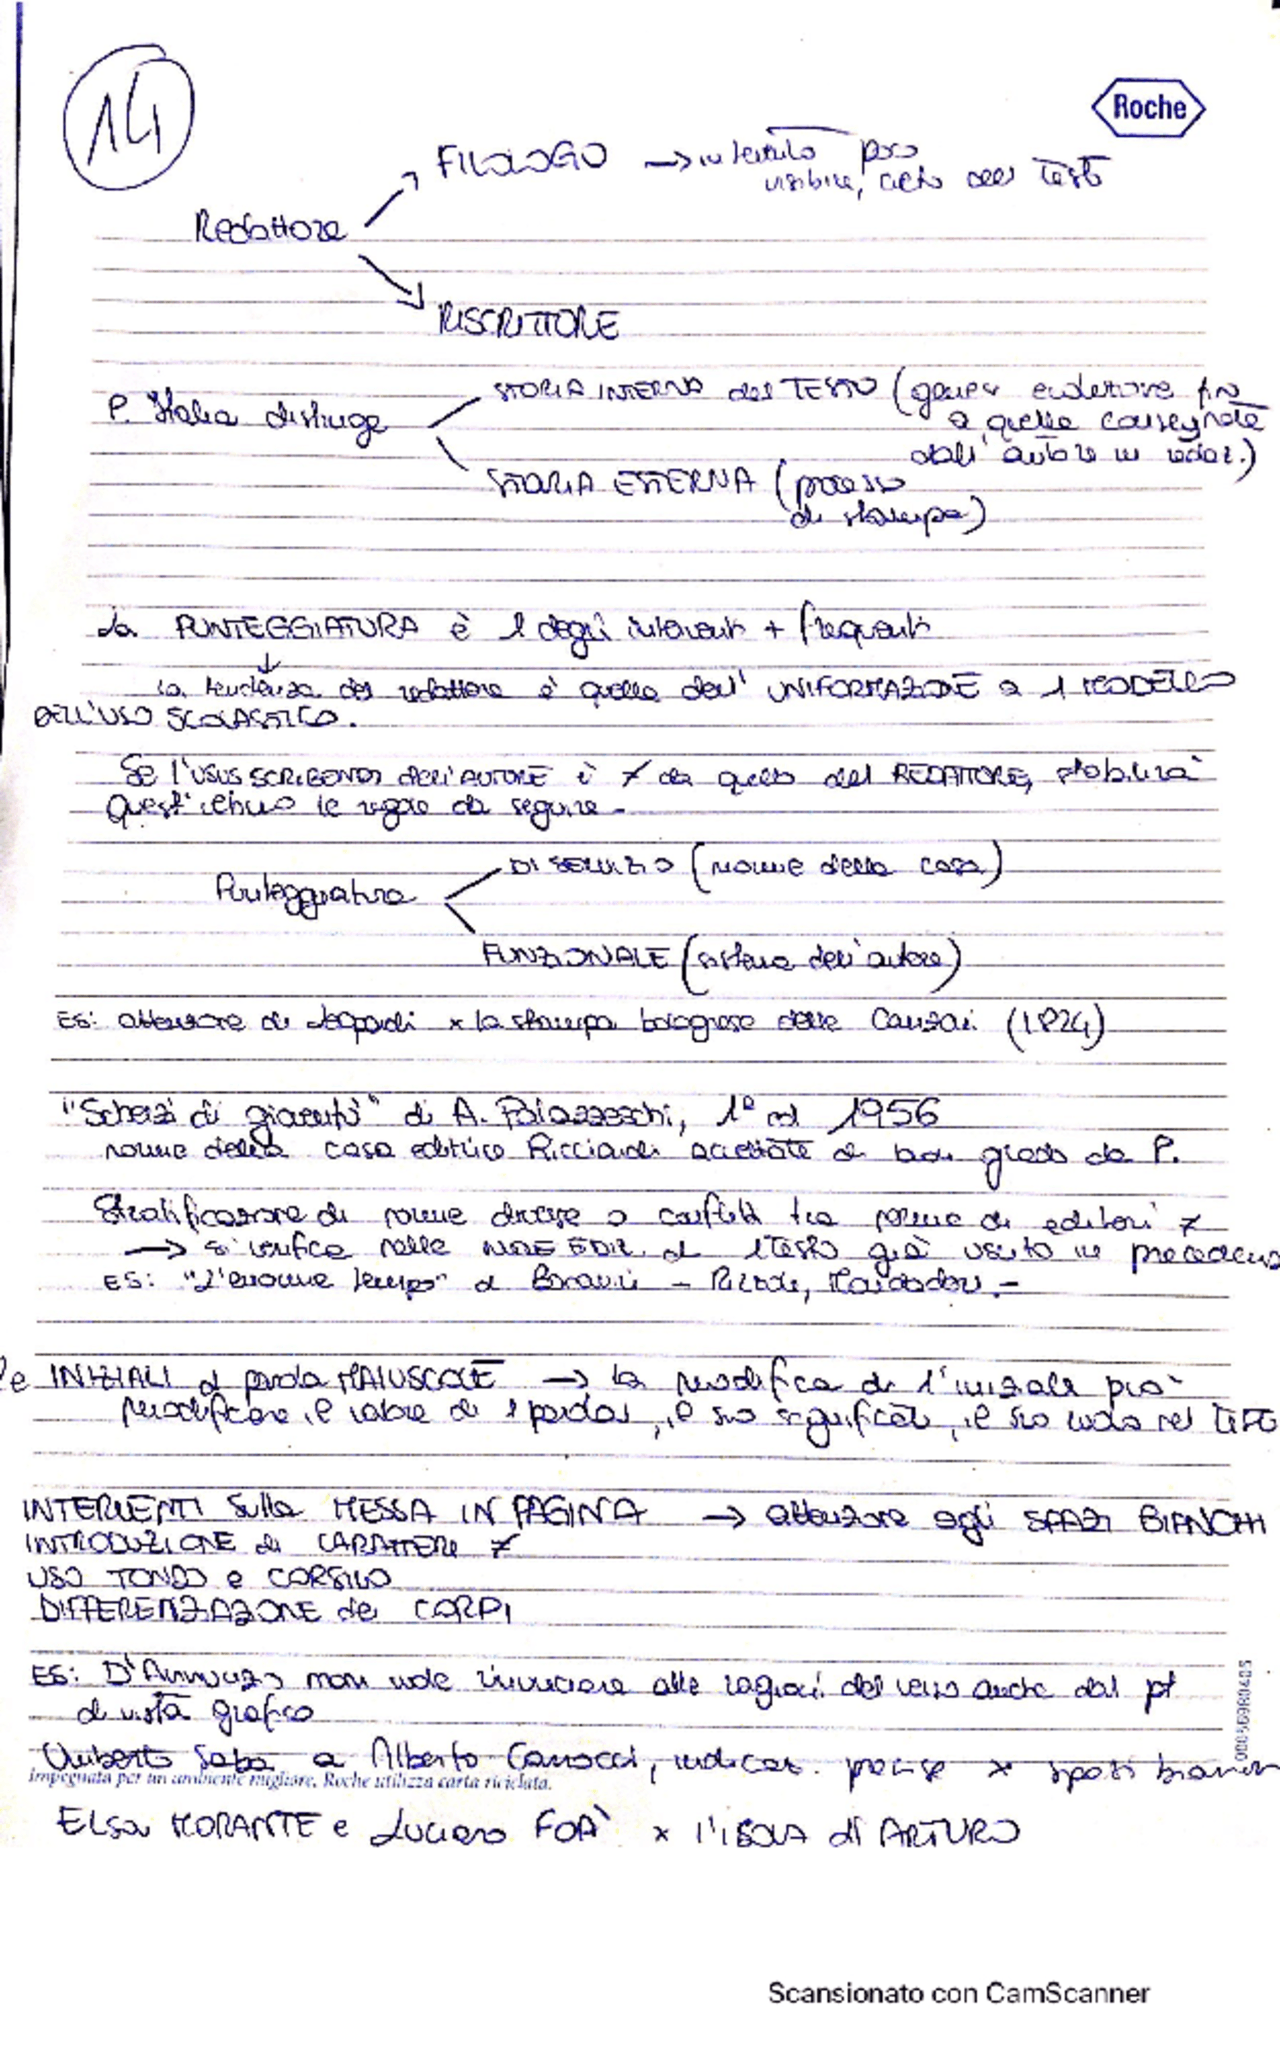 14
Roche
FILOLOGO → intervento poco
visibile, del testo
Redattore
RISCRITTORE
STORIA INTERNA del TESTO (genesi fino
P. Italia distingue
a quella consegnata
dall'autore in redaz.)
STORIA ESTERNA (processo
di stampa)
La PUNTEGGIATURA è 1 degli interventi + frequenti
↓
la tendenza del redattore è quella dell'UNIFORMAZIONE a 1 MODELLO
DELL'USO SCOLASTICO.
Se l'USUS SCRIBENDI dell'AUTORE è ≠ da quello del REDATTORE, stabilirà
quest'ultimo le regole da seguire.
DI SERVIZIO (norme della casa)
Punteggiatura
FUNZIONALE (sistema dell'autore)
ES: attenzione di Leopardi x la stampa bolognese delle Canzoni (1824)
"Scherzi di gioventù" di A. Palazzeschi, 1ª ed 1956
norme della casa editrice Ricciardi accettate di buon grado da P.
Stratificazione di norme diverse o conflitti tra norme di editori ≠
→ si verifica nelle NUOVE EDIZ. di 1 testo già uscito in precedenza
ES: "L'enorme tempo" di Bonaviri - Rizzoli, Mondadori. -
le INIZIALI di parola MAIUSCOLE → la modifica di 1 iniziale può
modificare il valore di 1 parola, il suo significato, il suo ruolo nel TESTO
INTERVENTI sulla MESSA IN PAGINA → attenzione agli SPAZI BIANCHI
INTRODUZIONE di CARATTERI ≠
USO TONDO e CORSIVO
DIFFERENZIAZIONE dei CORPI
ES: D'Annunzio non vuole rinunciare alle ragioni del verso anche dal pt
di vista grafico
Umberto Saba a Alberto Carocci, indicaz. precise x spazi bianchi
Impegnata per un ambiente migliore, Roche utilizza carta riciclata.
ELSA MORANTE e Luciano FOÀ x L'ISOLA di ARTURO
Scansionato con CamScanner